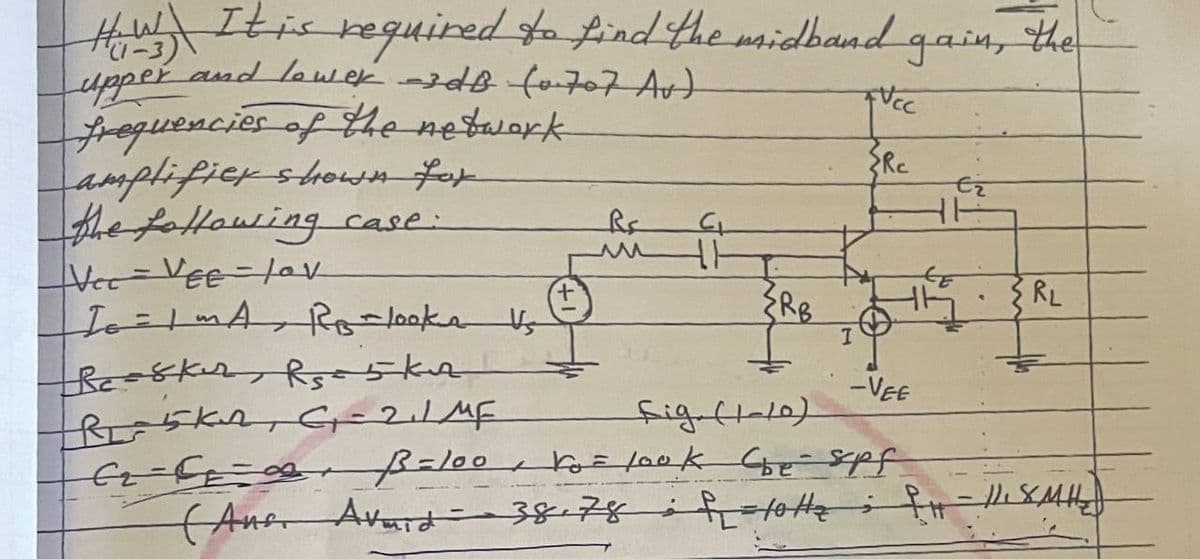 H.W) It is required to find the midband gain, the
(1-3)
upper and lower -3dB (0.707 Av)
frequencies of the network
amplifier shown for
the following case:
Vcc = VEE = 10V
Ic = 1 mA, RB = 100kΩ
Rc = 8kΩ, Rs = 5kΩ
RL = 5kΩ, C1 = 2.1 MF
C2 = CE = ∞, β = 100, ro = 100k Cbe = 8pf
(Ans. Avmid = - 38.78 ; fL = 10Hz ; fH = 11.8 MHz)
Vcc
Rc
C2
Rs
C1
Vs
RB
CE
RL
I
-VEE
Fig. (1-10)